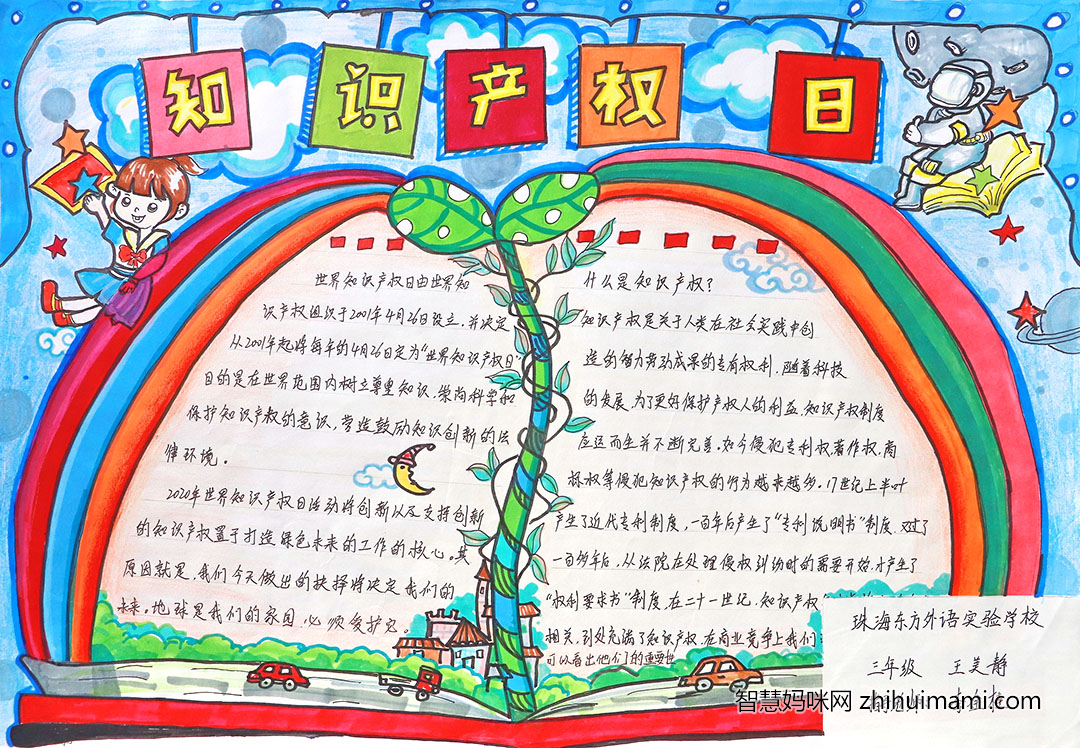 知识产权日
世界知识产权日由世界知
识产权组识于2001年4月26日设立,并决定
从2001年起将每年的4月26日定为"世界知识产权日"
目的是在世界范围内树立尊重知识,崇尚科学和
保护知识产权的意识,营造鼓励知识创新的法
律环境。
2020年世界知识产权日活动将创新以及支持创新
的知识产权置于打造绿色未来的工作的核心。其
原因就是,我们今天做出的抉择将决定我们的
未来。地球是我们的家园,必须爱护它。
什么是知识产权?
知识产权是关于人类在社会实践中创
造的智力劳动成果的专有权利,随着科技
的发展,为了更好保护产权人的利益,知识产权制度
应运而生并不断完善,如今侵犯专利权著作权,商
标权等侵犯知识产权的行为越来越多。17世纪上半叶
产生了近代专利制度,一百年后产生了"专利说明书"制度,又过了
一百多年后,从法院在处理侵权纠纷时的需要开始,才产生了
"权利要求书"制度,在二十一世纪,知识产权
相关,到处充满了知识产权,在商业竞争上我们
可以看出他们的重要性
珠海东方外语实验学校
三年级 王美静
智慧妈咪网 zhihuimami.com